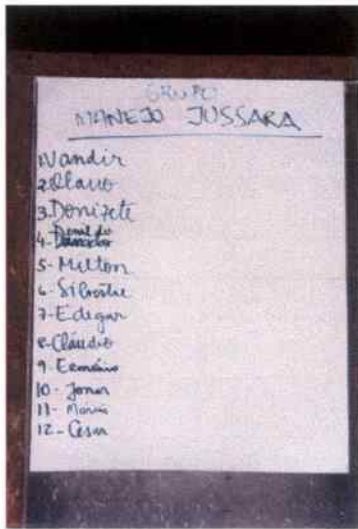 GRUPO
MANEJO JUSSARA
1. Vandir
2. Olavo
3. Donizete
4-
5- Milton
6- Silvestre
7- Edegar
8- Cláudio
9.
10 - Jomar
11 -
12 - Cesar